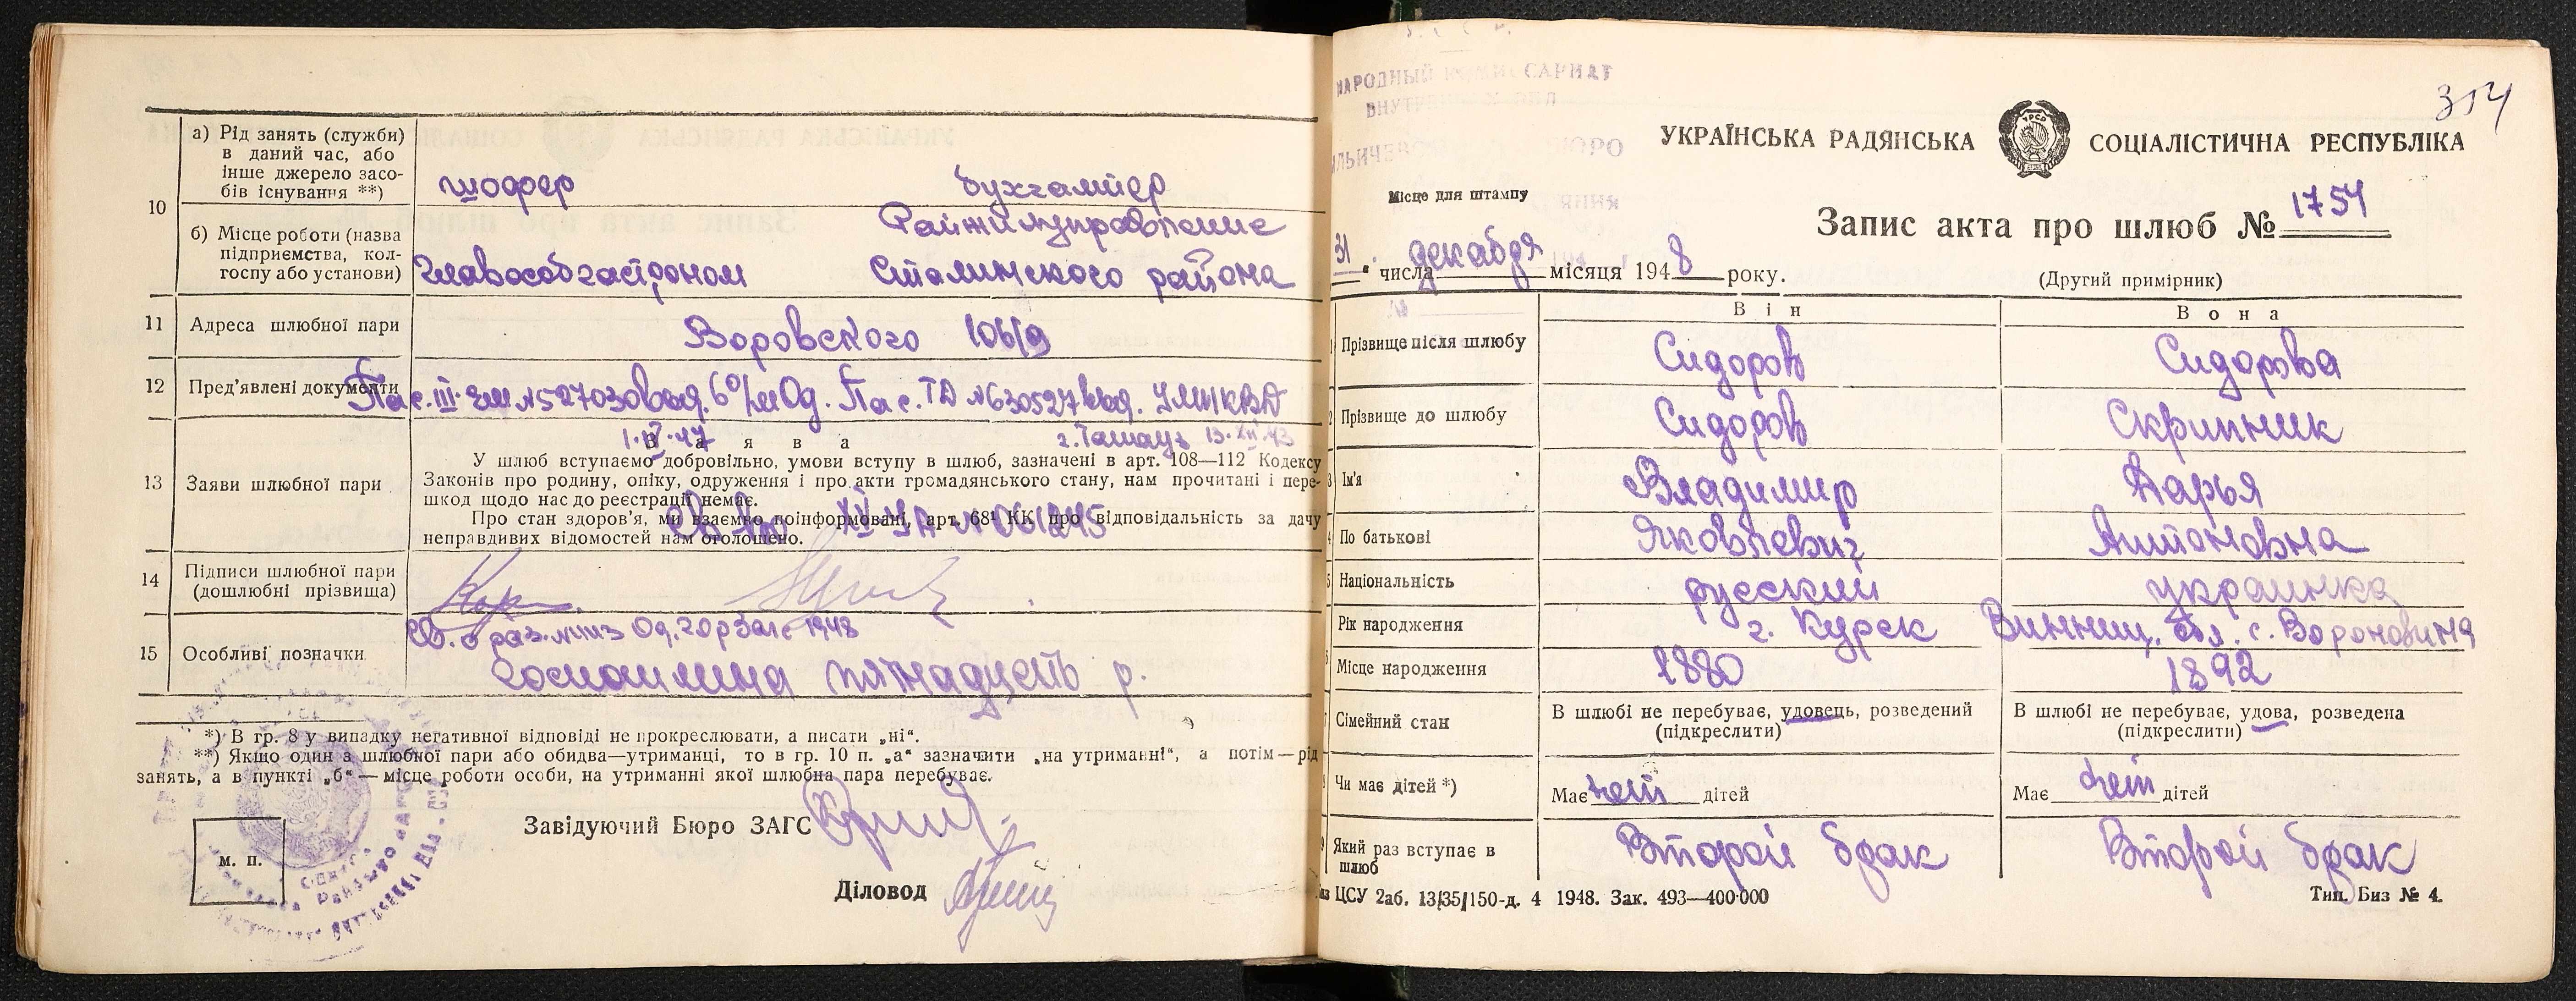 а) Рід занять (служби)
в даний час, або
інше джерело засо-
бів існування **)
шофер
бухгалтер
10
б) Місце роботи (назва
підприємства, кол-
госпу або установи)
Главособгастроном
Райжилуправление
Сталинского района
11 Адреса шлюбної пари
Воровского 106/9
12 Пред’явлені документи
Пас. III- № 527030 выд. 6 о/м Од. Пас. ТД № 630527 выд. НКВД
1.IV.47 г. Ташауз 13.XII.43
З а я в а
13 Заяви шлюбної пари
У шлюб вступаємо добровільно, умови вступу в шлюб, зазначені в арт. 108—112 Кодексу
Законів про родину, опіку, одруження і про акти громадянського стану, нам прочитані і пере-
шкод щодо нас до реєстрації немає.
Про стан здоров’я, ми взаємно поінформовані, арт. 68¹ КК про відповідальність за дачу
неправдивих відомостей нам оголошено.
14 Підписи шлюбної пари
(дошлюбні прізвища)
15 Особливі позначки
Од. гор Загс 1948
Госпошлина пятнадцать р.
*) В гр. 8 у випадку негативної відповіді не прокреслювати, а писати „ні“.
**) Якщо один з шлюбної пари або обидва—утриманці, то в гр. 10 п. „а“ зазначити „на утриманні“, а потім—рід
занять, а в пункті „б“ — місце роботи особи, на утриманні якої шлюбна пара перебуває.
Завідуючий Бюро ЗАГС
м. п.
Діловод
314
НАРОДНЫЙ КОМИССАРИАТ
ВНУТРЕННИХ ДЕЛ
БЮРО
УКРАЇНСЬКА РАДЯНСЬКА СОЦІАЛІСТИЧНА РЕСПУБЛІКА
УРСР
Місце для штампу
Запис акта про шлюб № 1754
31 числа декабря місяця 1948 року.
(Другий примірник)
Він
Вона
1 Прізвище після шлюбу
Сидоров
Сидорова
2 Прізвище до шлюбу
Сидоров
Скрипник
3 Ім’я
Владимир
Дарья
4 По батькові
Яковлевич
Антоновна
5 Національність
русский
украинка
Рік народження
г. Курск
Винниц. обл. с. Вороновица
6 Місце народження
1880
1892
7 Сімейний стан
В шлюбі не перебуває, удовець, розведений
(підкреслити)
В шлюбі не перебуває, удова, розведена
(підкреслити)
8 Чи має дітей *)
Має нет дітей
Має нет дітей
9 Який раз вступає в
шлюб
Второй брак
Второй брак
ЦСУ 2аб. 13/35/150-д. 4 1948. Зак. 493—400·000
Тип. Биз № 4.